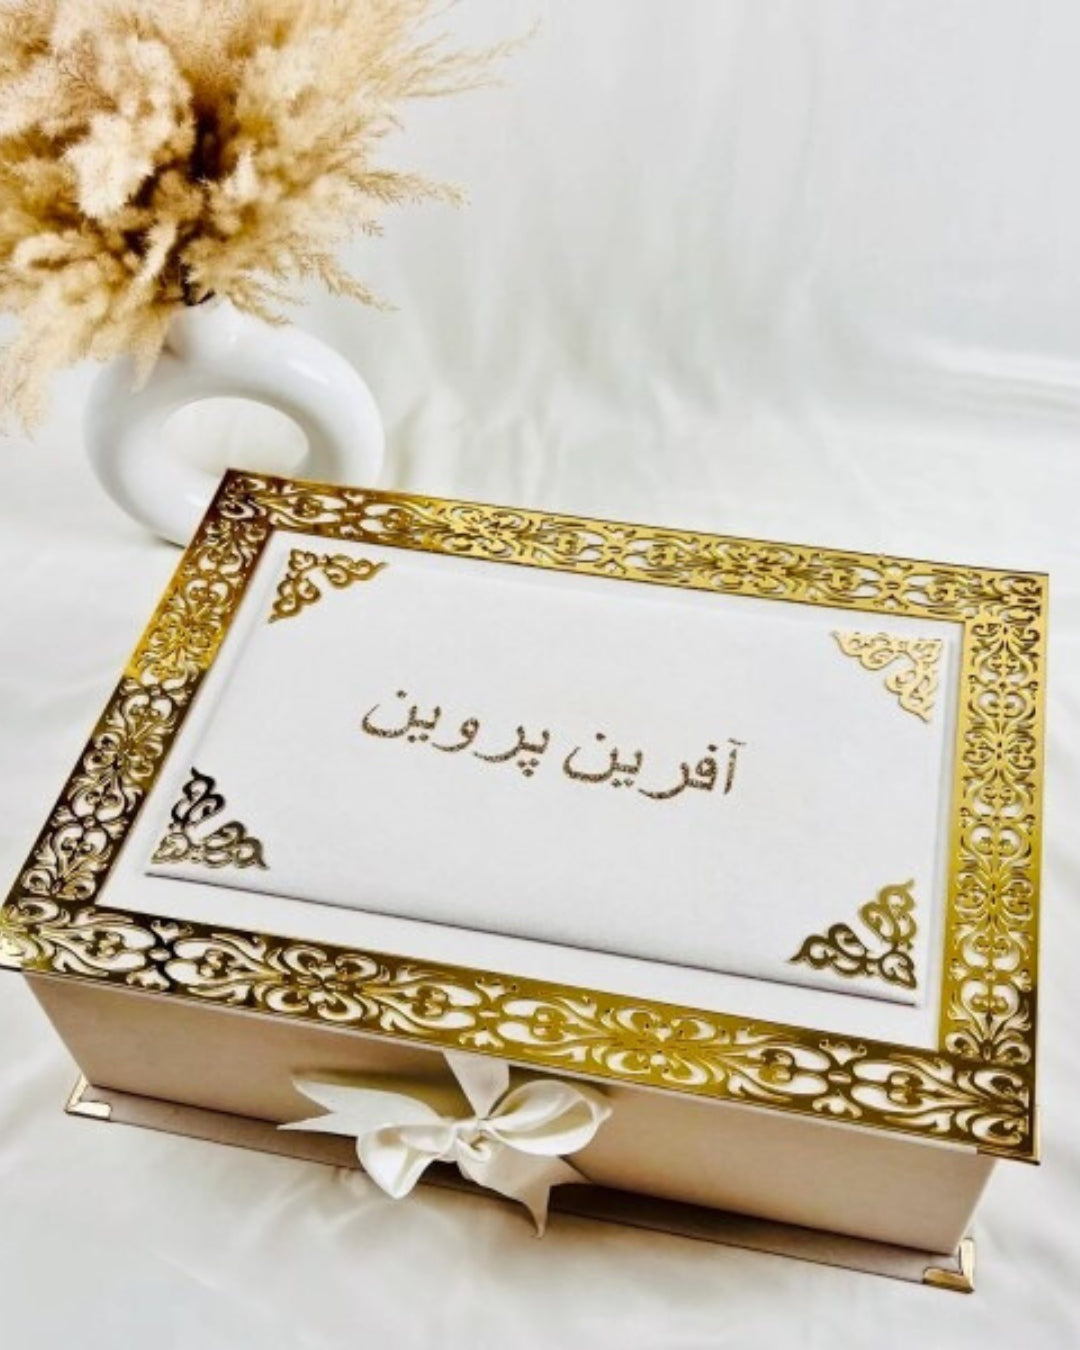 آفرین پروین